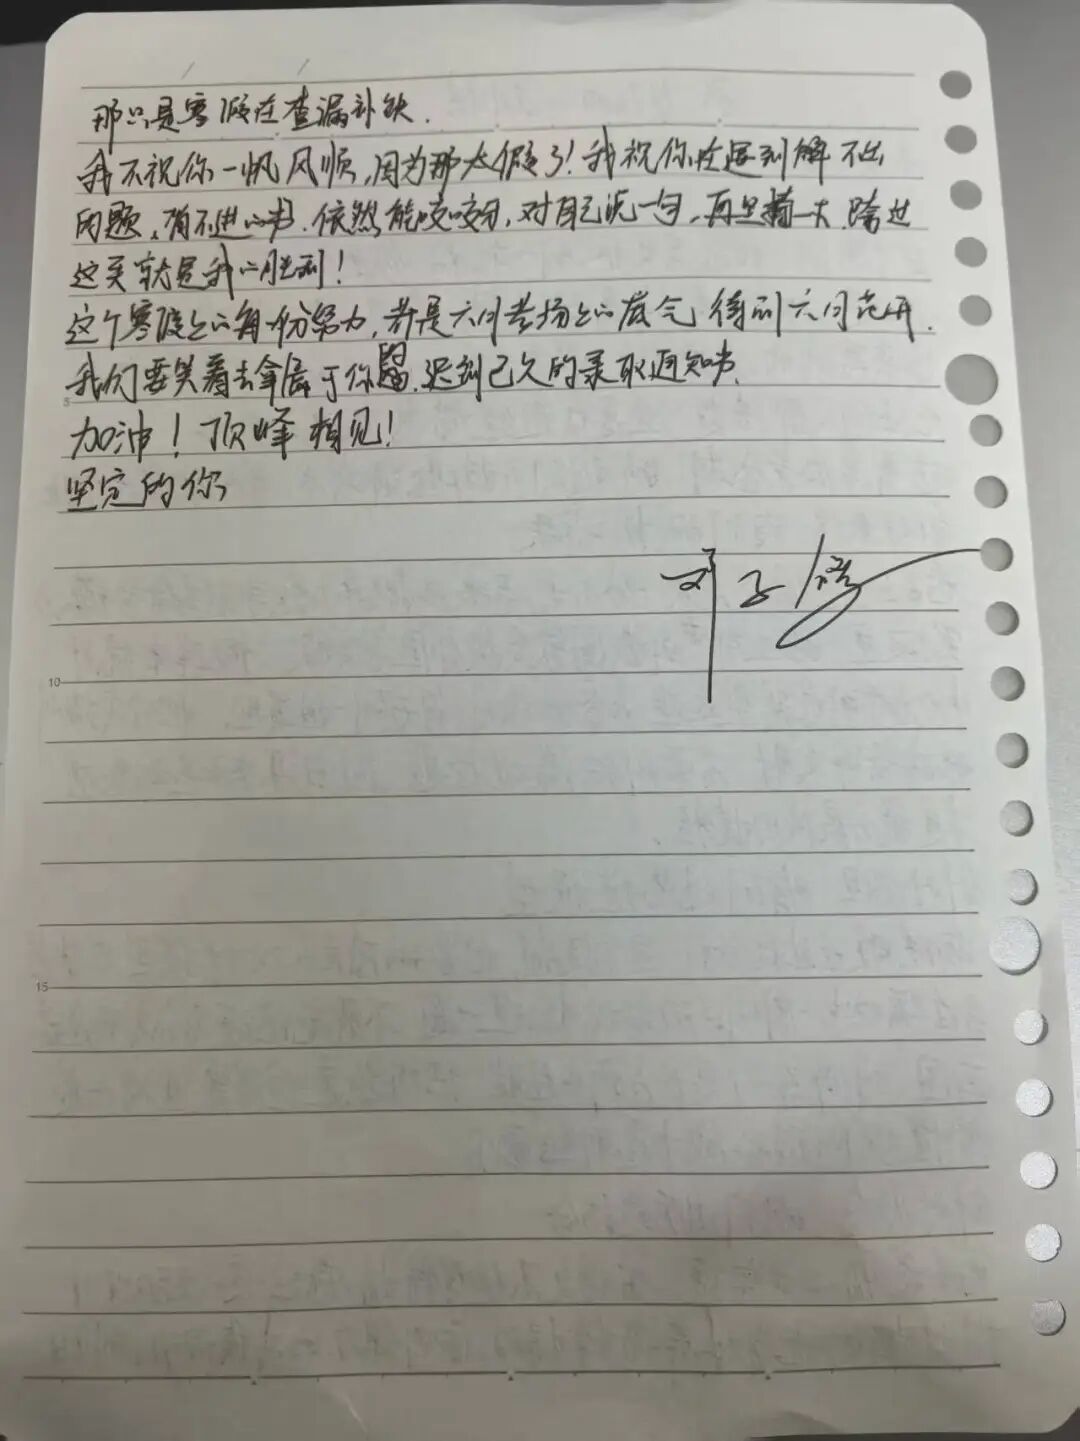 那只是寒假在查漏补缺.
我不祝你一帆风顺,因为那太假了!我祝你在遇到解不出
的题,看不进的书.依然能咬咬牙,对自己说一句,再坚持一天.跨过
这关就是我的胜利!
这个寒假上的每一份努力,都是六月考场上的底气 待到六月花开.
我们要笑着去拿属于你 .迟到已久的录取通知书.
加油!顶峰相见!
坚定的你
刘子
10
15